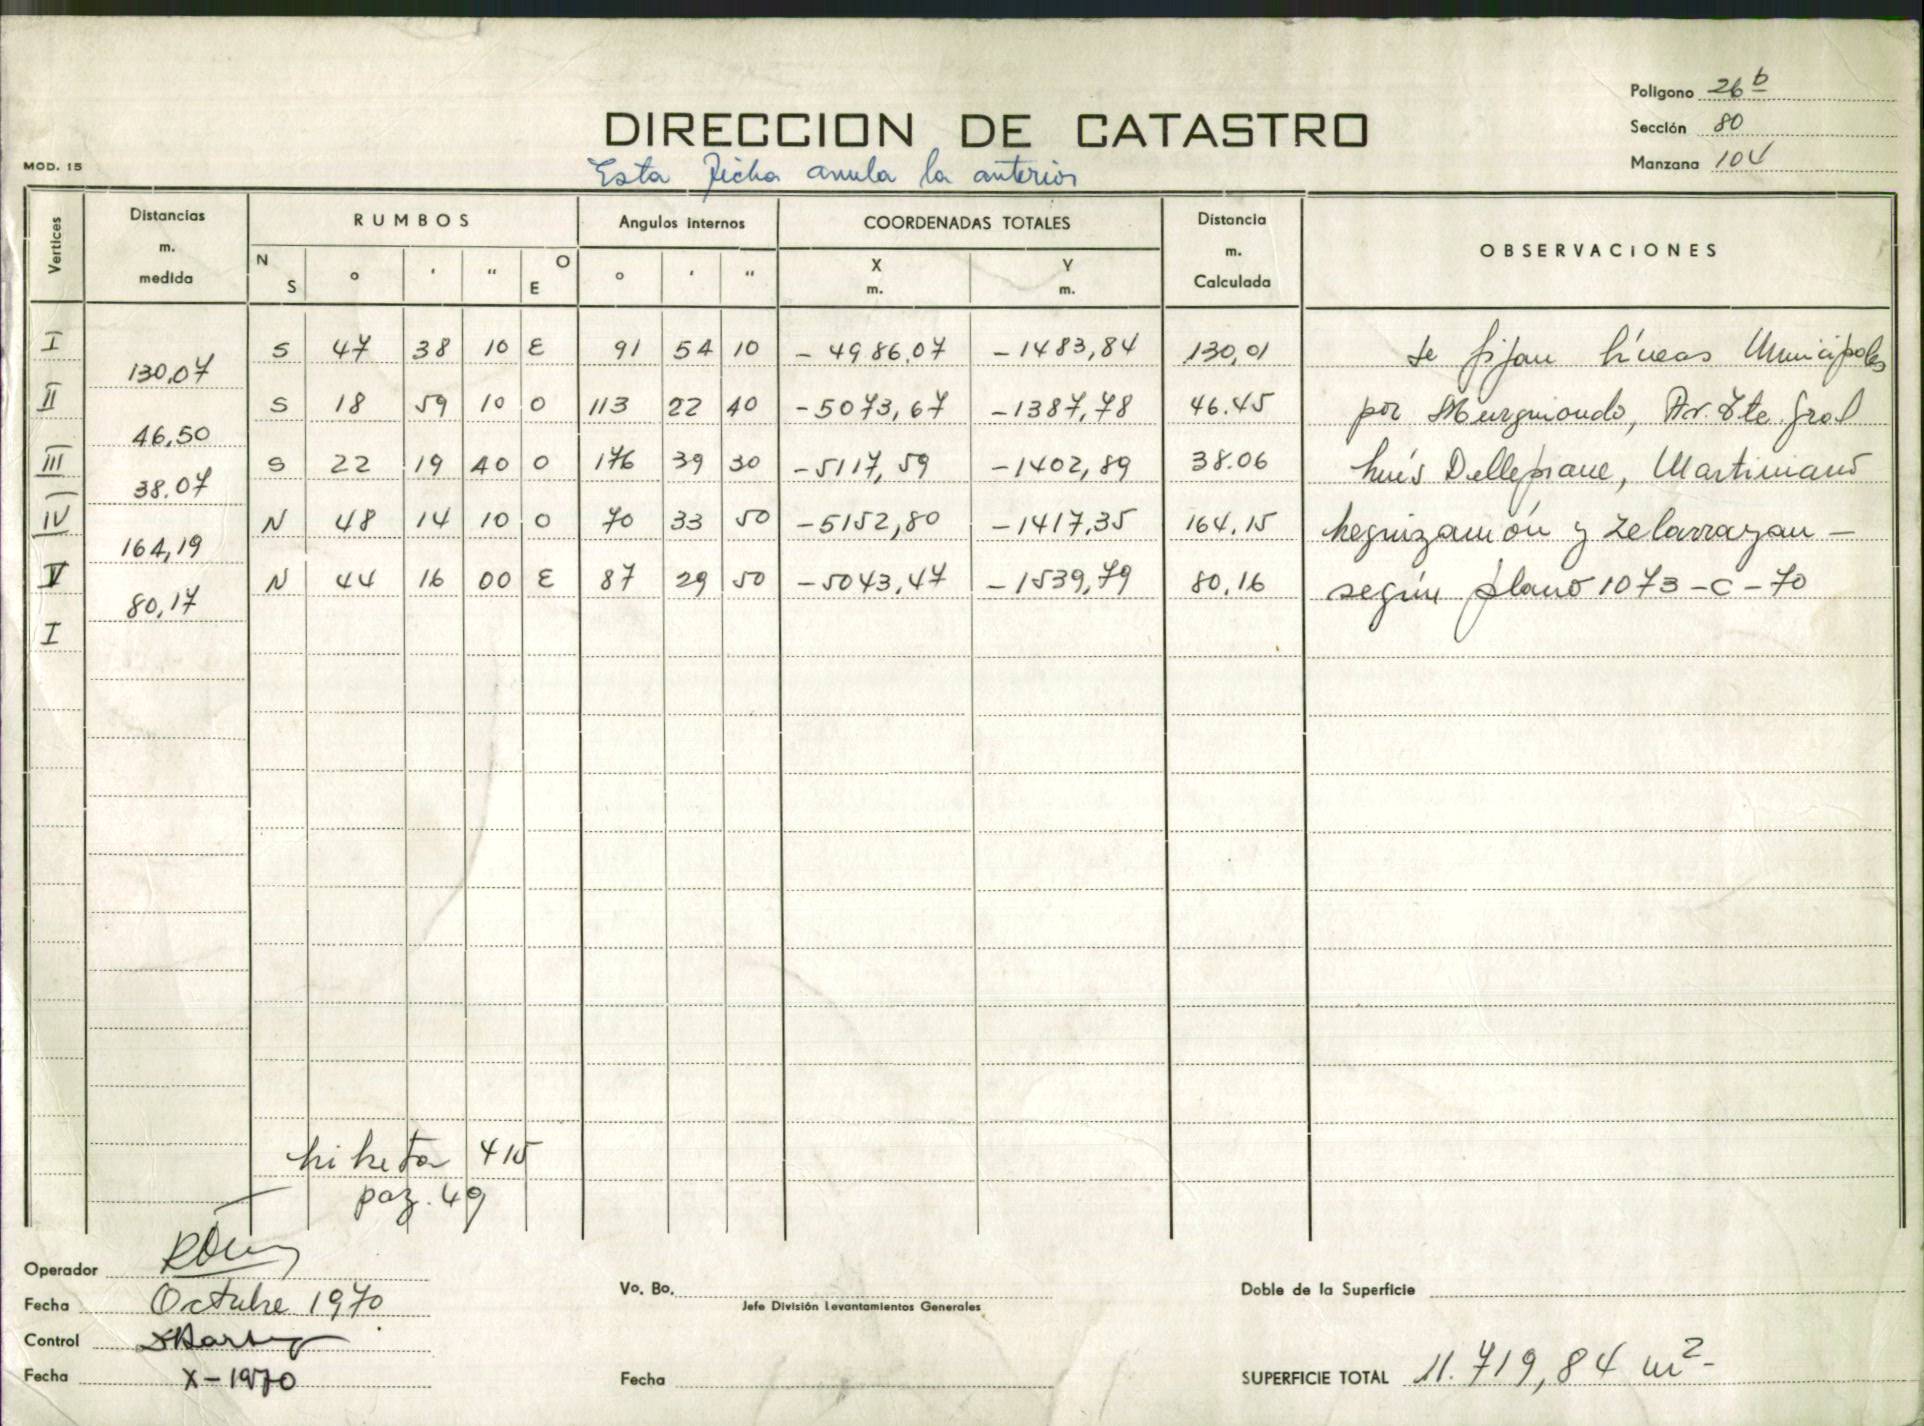 Polígono 26 b
DIRECCION DE CATASTRO
Sección 80
MOD. 15
Esta ficha anula la anterior
Manzana 104
Vertices
Distancias m. medida
RUMBOS
Angulos internos
COORDENADAS TOTALES
Distancia m. Calculada
OBSERVACIONES
N S ° ' " O E
° ' "
X m. Y m.
I S 47 38 10 E 91 54 10 - 4986,07 -1483,84 130,01 Se fijan Líneas Municipales
130,07
II S 18 59 10 O 113 22 40 -5073,67 -1387,78 46.45 por Murguiondo, Av. Tte. Gral
46,50
III S 22 19 40 O 176 39 30 -5117,59 -1402,89 38.06 Luis Dellepiane, Martiniano
38.07
IV N 48 14 10 O 70 33 50 -5152,80 -1417,35 164.15 Leguizamón y Zelarrayan -
164,19
V N 44 16 00 E 87 29 50 -5043,47 -1539,79 80,16 según plano 1073-C-70
80,17
I
Libreta 415
pag. 49
Operador
Fecha Octubre 1970
Vo. Bo.
Jefe División Levantamientos Generales
Doble de la Superficie
Control
Fecha X-1970
Fecha
SUPERFICIE TOTAL 11.719,84 m2-